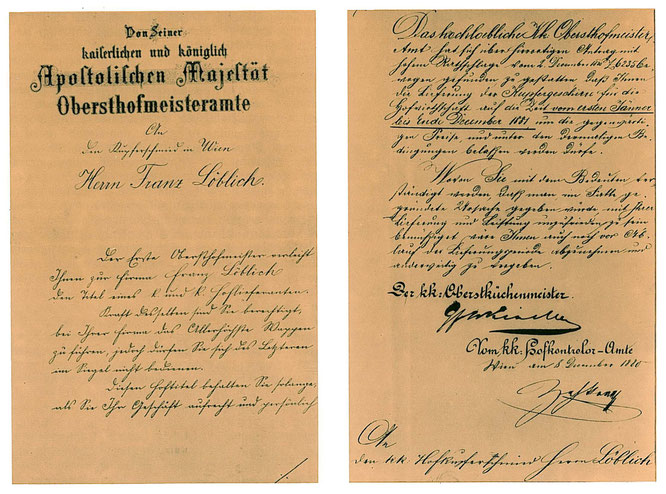 Von Seiner
kaiserlichen und königlich
Apostolischen Majestät
Obersthofmeisteramte
An
den Kupferschmied in Wien
Herrn Franz Löblich.
Der Erste Obersthofmeister verleiht
Ihnen zur Firma Franz Löblich
den Titel eines k. und k. Hoflieferanten.
Kraft desselben sind Sie berechtigt,
bei Ihrer Firma das Allerhöchste Wappen
zu führen, jedoch dürfen Sie sich des Letzteren
im Siegel nicht bedienen.
Diesen Hoftitel behalten Sie solange,
als Sie Ihr Geschäft aufrecht und persönlich
Das hochlöbliche kk Obersthofmeister
Amt hat sich über hierortigen Antrag mit
hohem Rathschlage vom 2. Dezember
wogen gefunden zu gestatten daß Ihnen
die Lieferung des Kupfergeschirrs für die
Hofwirthschaft auf die Zeit vom ersten Jänner
bis Ende Dezember 1881 um die gegenwärti-
gen Preise, und unter den dermaligen Be-
dingungen belassen werden dürfe.
Wovon Sie mit dem Bedeuten ver-
ständigt werden daß man im Falle ge-
gründete Ursache gegeben würde mit Ihrer
Lieferung und Leistung unzufrieden zu sein
bemüßiget wäre Ihnen auch noch vor Ab-
lauf der Lieferungsperiode abzunehmen und
anderweitig zu vergeben.
Der kk: Oberstküchenmeister.
Vom kk: Hofkontrolor-Amte
Wien am 8 Dezember 1880
An
den kk Hofkupferschmied Herrn Löblich